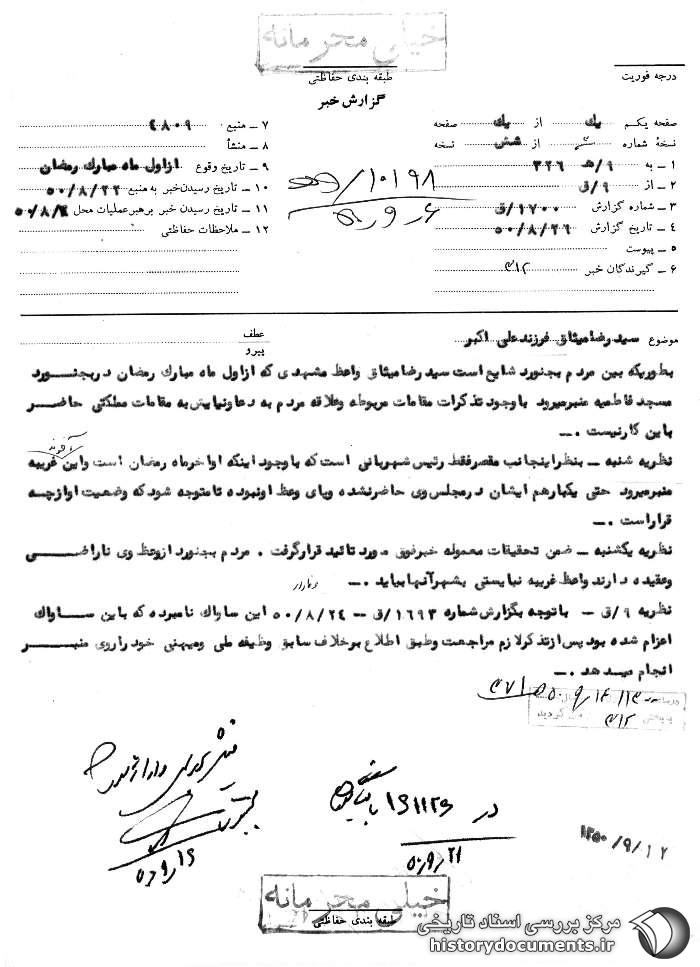 خیلی محرمانه
طبقه بندی حفاظتی
گزارش خبر
درجه فوریت
صفحه یکم یک از یک صفحه
نسخهٔ شماره از شش نسخه
۱ ــ به ۹/ه‍ ۳۲۶
۲ ــ از ۹/ق
۳ ــ شماره گزارش ۱۷۰۰/ق
۴ ــ تاریخ گزارش ۵۰/۸/۲۶
۵ ــ پیوست
۶ ــ گیرندگان خبر ۳۱۲
۷ ــ منبع ۴۸۰۹
۸ ــ منشأ
۹ ــ تاریخ وقوع ازاول ماه مبارک رمضان
۱۰ ــ تاریخ رسیدن خبر به منبع ۵۰/۸/۲۲
۱۱ ــ تاریخ رسیدن خبر برهبر عملیات محل
۱۲ ــ ملاحظات حفاظتی
موضوع سید رضا میثاق فرزند علی اکبر
عطف
پیرو
بطوریکه بین مردم بجنورد شایع است سید رضا میثاق واعظ مشهدی که ازاول ماه مبارک رمضان در بجنورد
مسجد فاطمیه منبرمیرود باوجود تذکرات مقامات مربوطه وعلاقه مردم به دعا ونیایش به مقامات مملکتی حاضر
باین کارنیست .ــ
نظریه شنبه ــ بنظراینجانب مقصرفقط رئیس شهربانی است که باوجود اینکه اواخرماه رمضان است واین غریبه
منبرمیرود حتی یکبارهم ایشان درمجلس وی حاضرنشده وپای وعظ اونبوده تامتوجه شود که وضعیت اوازچه
قراراست .ــ
نظریه یکشنبه ــ ضمن تحقیقات معموله خبرفوق مورد تائید قرارگرفت . مردم بجنورد ازوعظ وی ناراضی
وعقیده دارند واعظ غریبه نبایستی بشهرآنها بیاید .ــ
نظریه ۹/ق ــ باتوجه بگزارش شماره ۱۶۹۳/ق ــ ۵۰/۸/۲۴ این ساواک نامبرده که باین ساواک
اعزام شده بود پس ازتذکرلازم مراجعت وطبق اطلاع برخلاف سابق وظیفه ملی ومیهنی خود راروی منبر
انجام میدهد .ــ
۱۳۵۰/۹/۱۲
خیلی محرمانه
طبقه بندی حفاظتی
مرکز بررسی اسناد تاریخی
historydocuments.ir